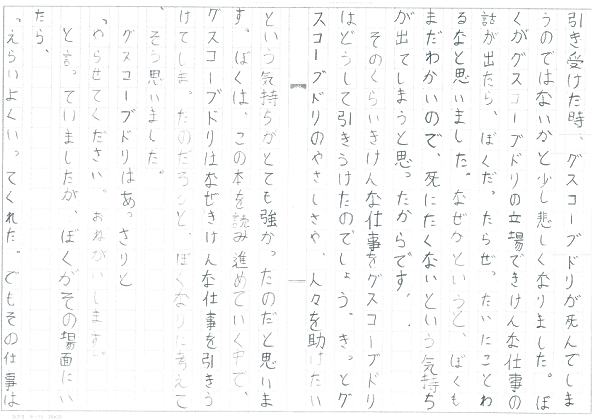 引き受けた時、グスコーブドリが死んでしま
うのではないかと少し悲しくなりました。ぼ
くがグスコーブドリの立場できけんな仕事の
話が出たら、ぼくだったらぜったいにことわ
るなと思いました。なぜかというと、ぼくも
まだわかいので、死にたくないという気持ち
が出てしまうと思ったからです。
そのくらいきけんな仕事をグスコーブドリ
はどうして引きうけたのでしょう。きっとグ
スコーブドリのやさしさや、人々を助けたい
という気持ちがとても強かったのだと思いま
す。ぼくは、この本を読み進めていく中で、
グスコーブドリはなぜきけんな仕事を引きう
けてしまったのだろうと、ぼくなりに考えて
そう思いました。
グスコーブドリはあっさりと
「やらせてください。おねがいします。」
と言っていましたが、ぼくがその場面にい
たら、
「えらいよくいってくれた。でもその仕事は